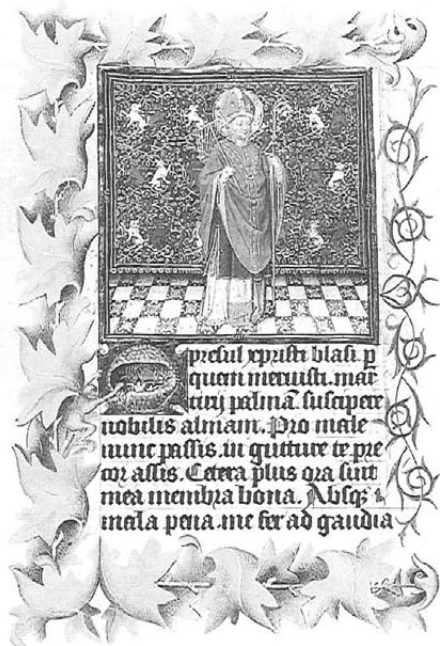 O presul xpristi blasi. p
quem meruisti. mar
tirij palmā suscipere
nobilis almam. Pro male
nunc passis. in gutture te pre
cor assis. Cetera plus qra sint
mea membra bona. Absqꝫ
mala pena. me fer ad gaudia